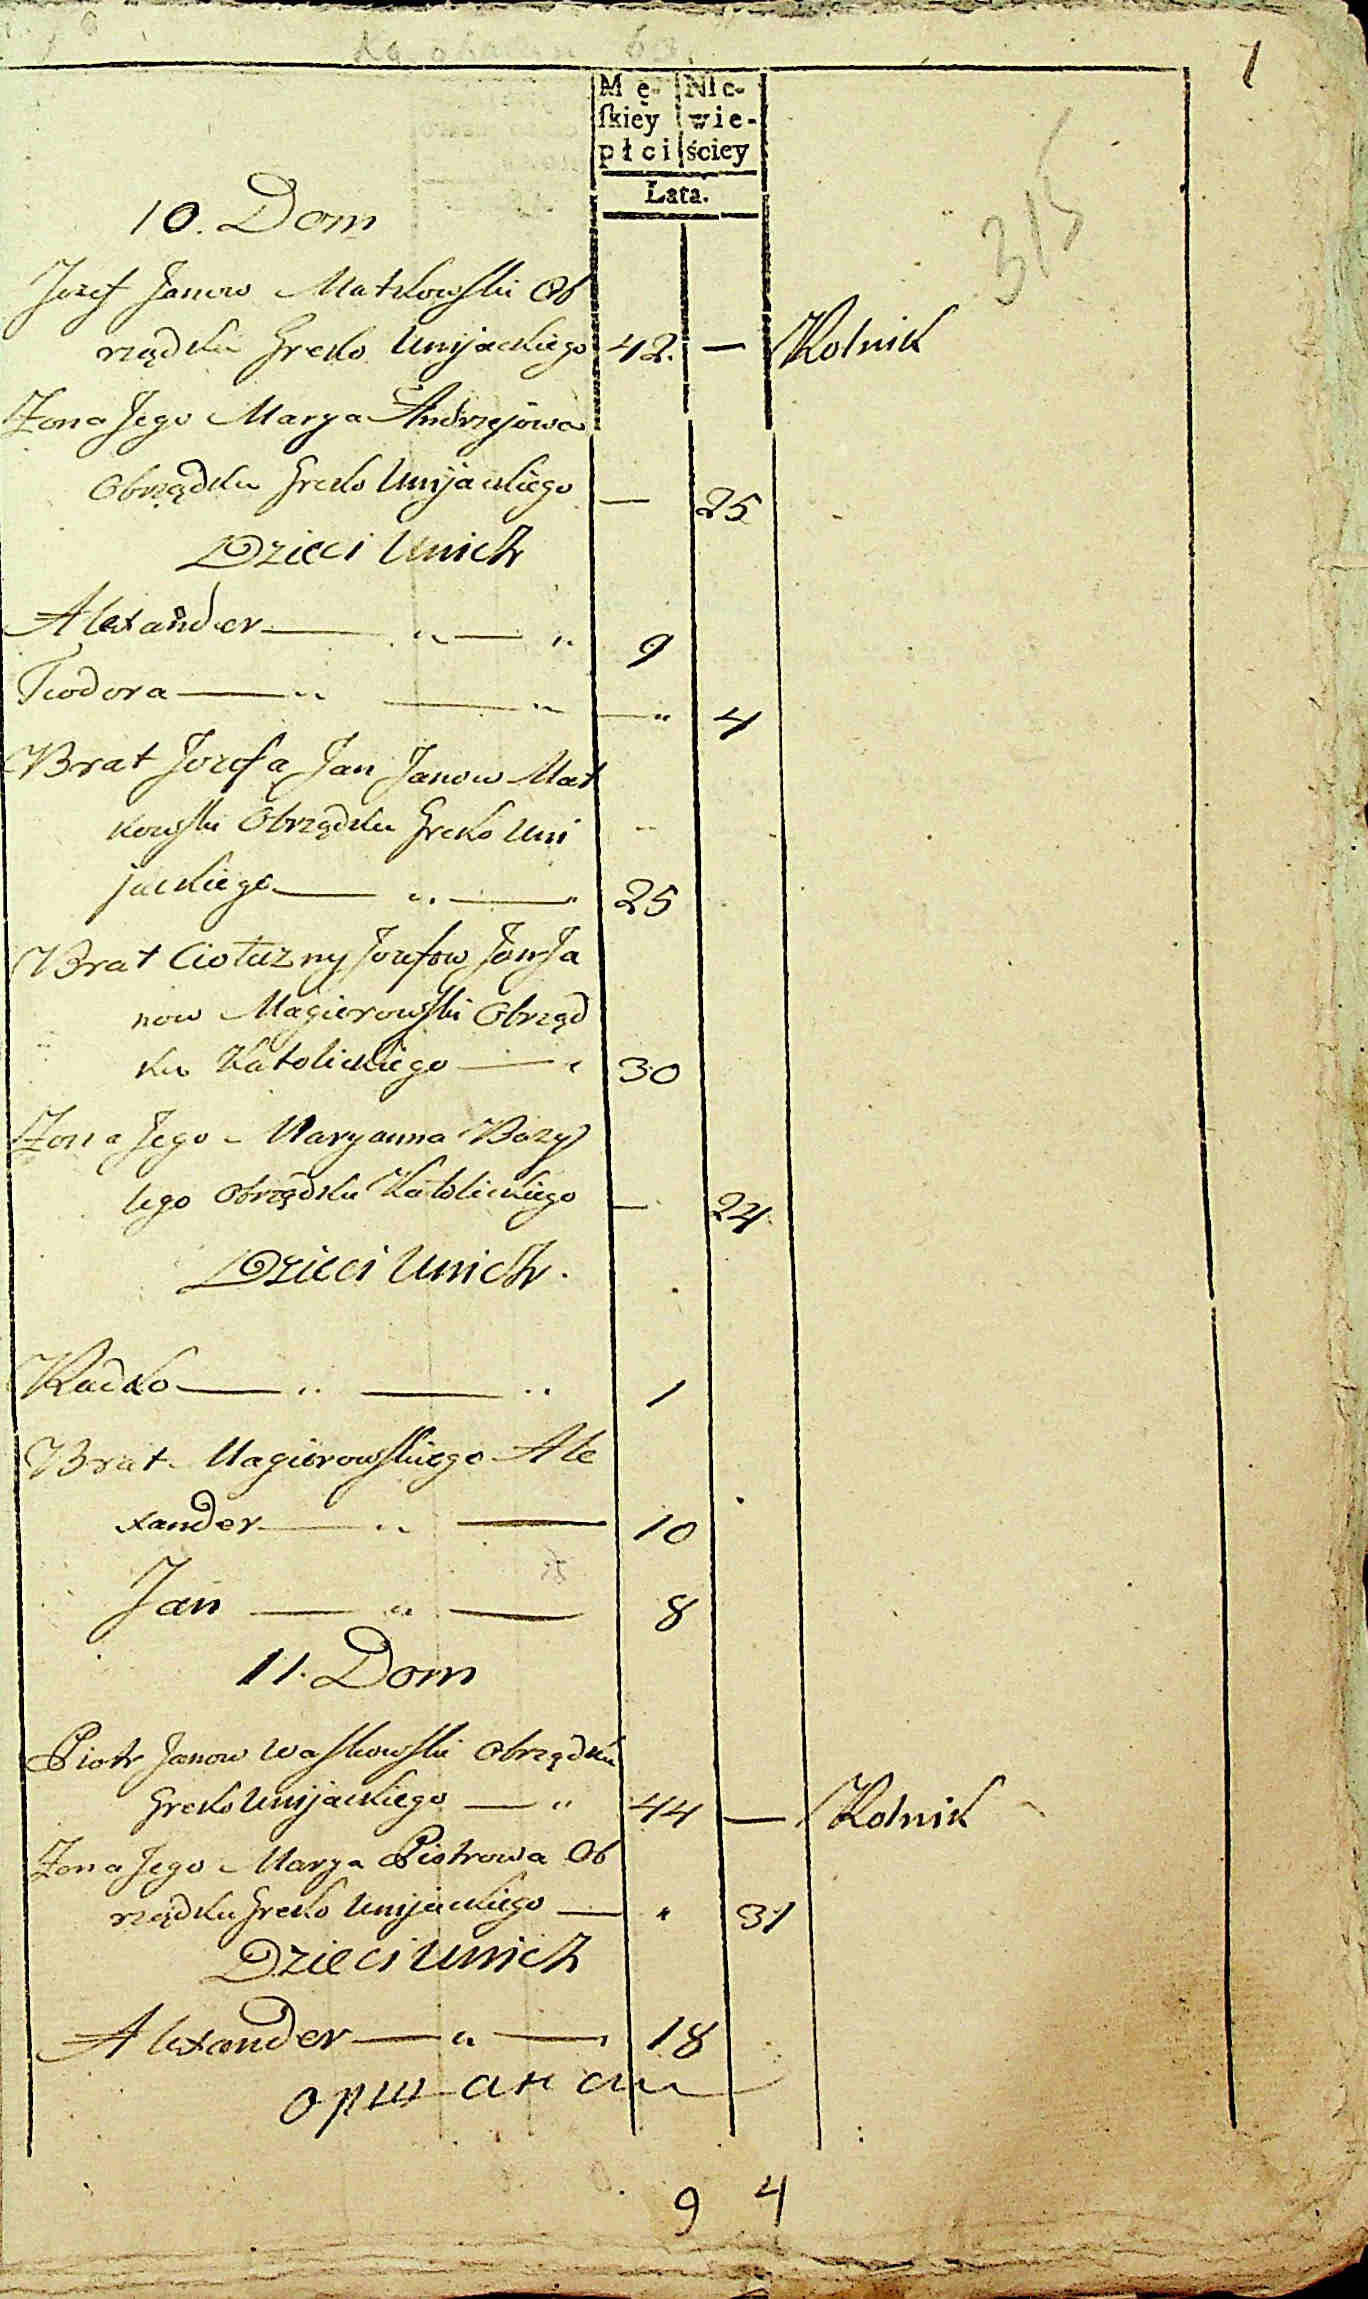 1
315
Mę- Nie-
ſkiey wie-
płci ściey
Lata.
10. Dom
Jozef Janow Matkowski Ob
rządku Greko Unijackiego 42. — Rolnik
Żona Jego Marya Andrzejowa
Obrządku Greko Unijackiego — 25
Dzieci Unich
Alexander — „ — „ 9
Teodora — „ — „ — „ 4
Brat Jozefa Jan Janow Mat
kowski Obrządku Greko Uni
jackiego — „ — „ 25
Brat Ciotuzny Jozefow Jan Ja
now Magierowski Obrząd
ku Katolickiego — „ 30
Żona Jego Maryanna Bazy
lego Obrządku Katolickiego — 24
Dzieci Unich.
— „ — „ 1
Brat Magierowskiego Ale
xander — „ — 10
Jan — „ — 8
11. Dom
Piotr Janow Waskowski Obrządku
Greko Unijackiego — „ 44 — Rolnik
Żona Jego Marya Piotrowa Ob
rządku Greko Unijackiego — „ 31
Dzieci Unich
Alexander — „ — 18
9 4